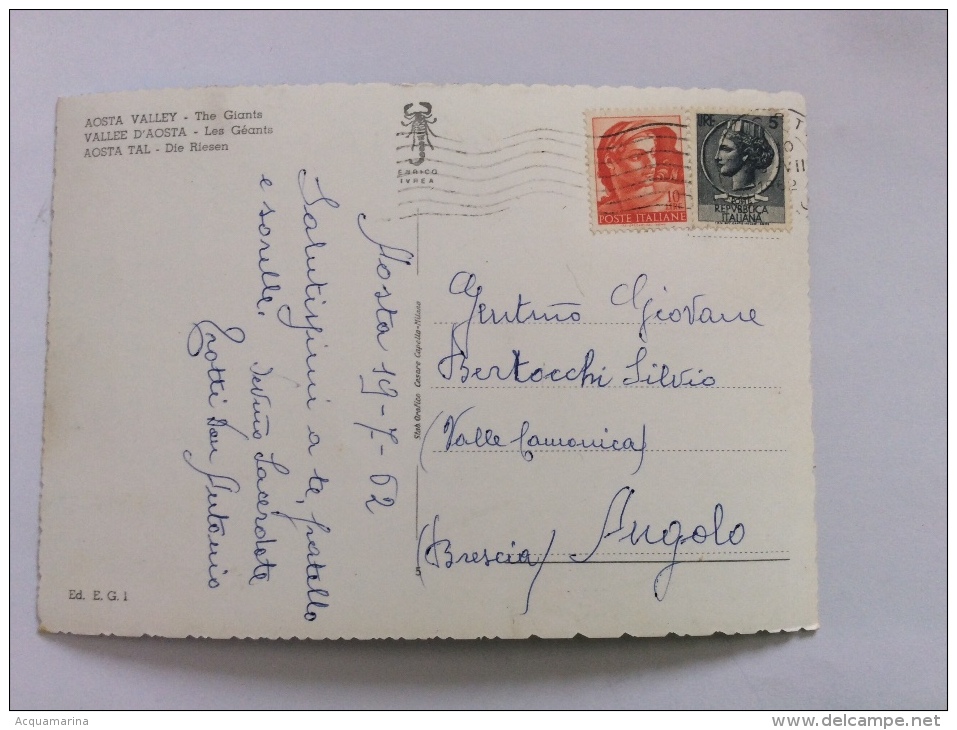 AOSTA VALLEY - The Giants
VALLEE D'AOSTA - Les Géants
AOSTA TAL - Die Riesen
ENRICO
IVREA
Aosta 19-7-62
Salutissimi a te, fratello
e sorelle.
Dev.mo Sacerdote
Don Antonio
Ed. E. G. I
Stab Grafico Cesare Capello-Milano
5
10
POSTE ITALIANE
LIRE 5
POSTE
REPVBBLICA
ITALIANA
VII
62
Gent.mo Giovane
Bertocchi Silvio
(Valle Camonica)
(Brescia) Angolo
Acquamarina
delcampe.net